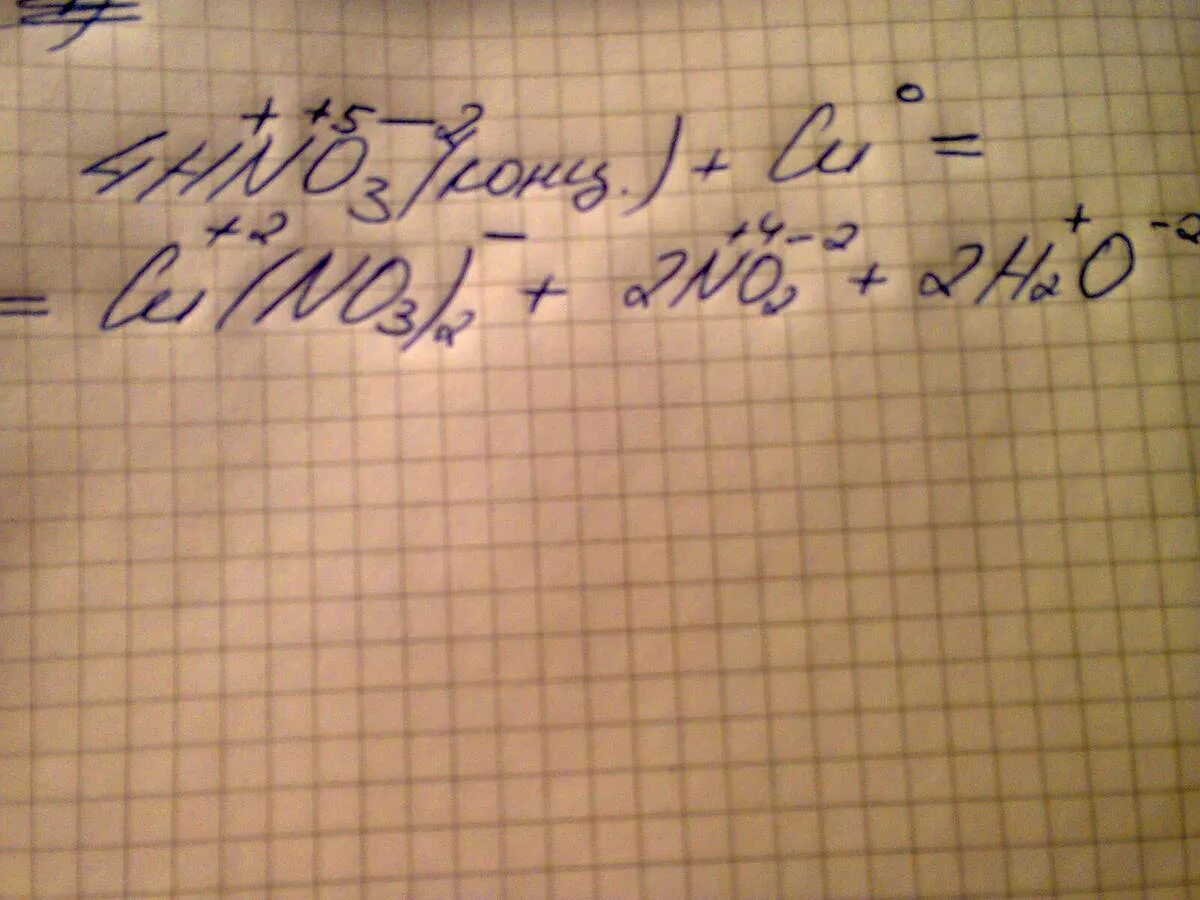 4H⁺N⁺⁵O₃⁻²(конц.) + Cu⁰ =
= Cu⁺²(NO₃)₂⁻ + 2N⁺⁴O₂⁻² + 2H₂⁺O⁻²